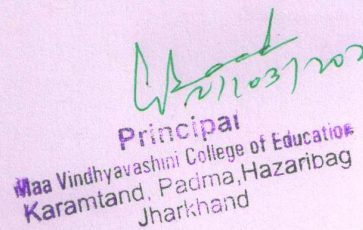 Principal
Maa Vindhyavashini College of Education
Karamtand, Padma, Hazaribag
Jharkhand